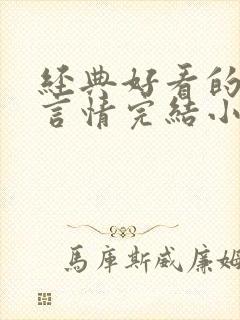 經典好看的
言情完結小
馬庫斯威廉姆